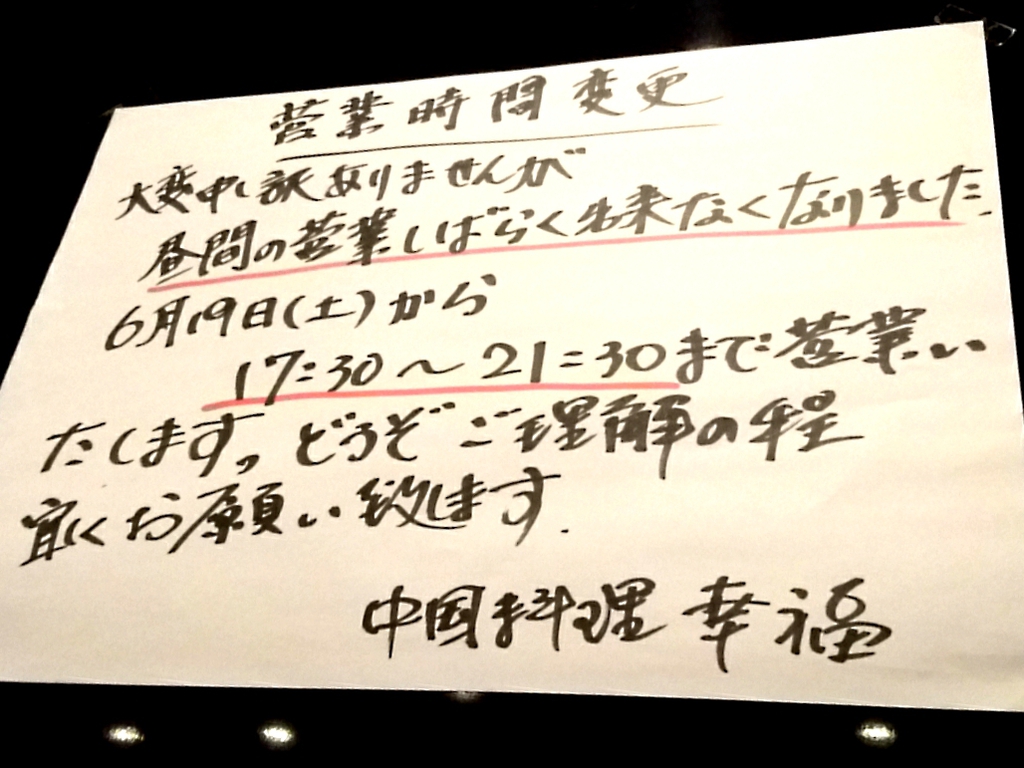 営業時間変更
大変申し訳ありませんが
昼間の営業しばらく出来なくなりました.
6月19日(土)から
17:30〜21:30まで営業い
たします。どうぞご理解の程
宜くお願い致します.
中国料理 幸福